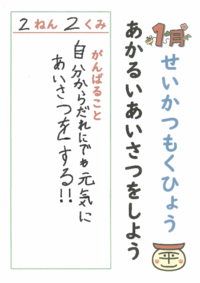 1月
せいかつもくひょう
あかるいあいさつをしよう
2ねん2くみ
がんばること
自分からだれにでも元気に
あいさつを」する!!